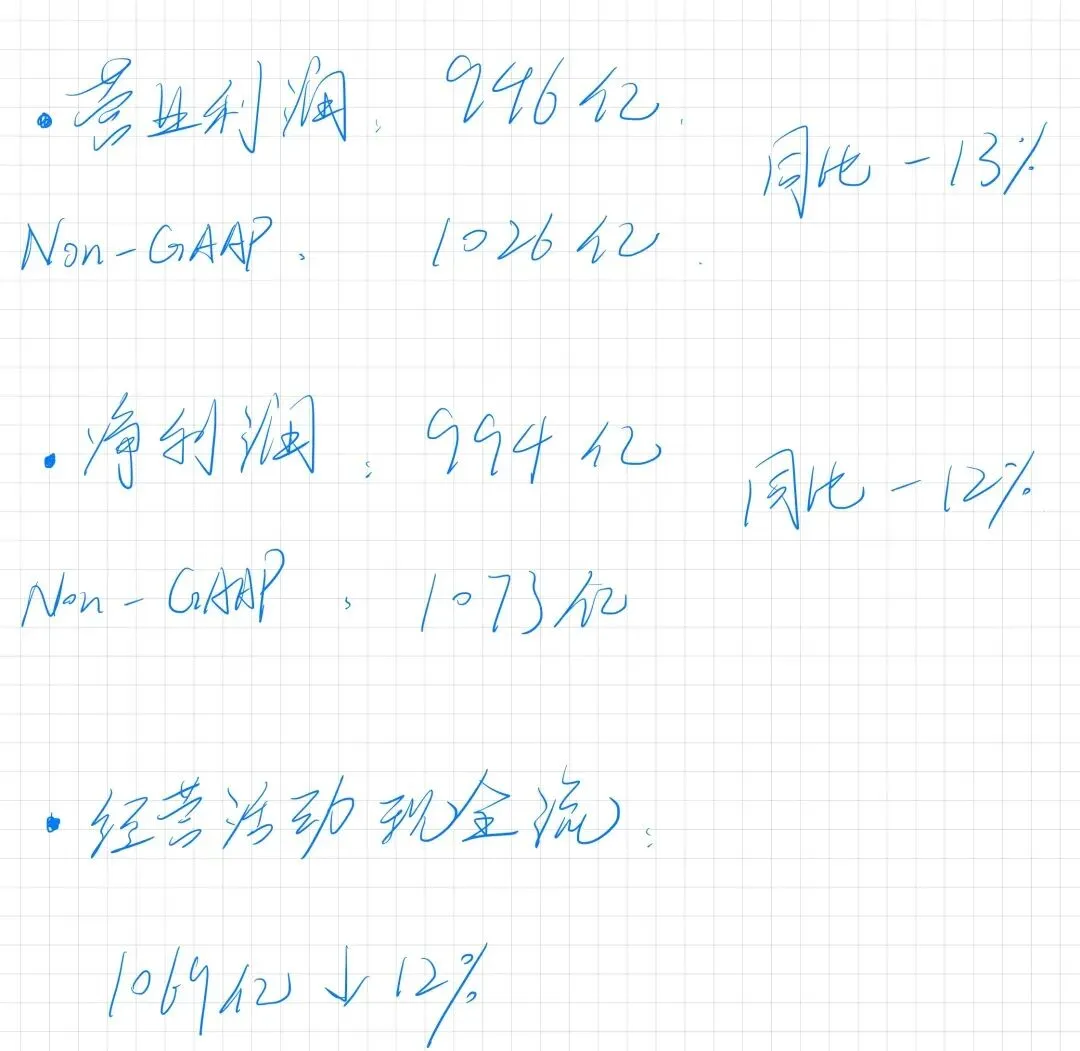 • 营业利润: 946亿.
同比 -13%
Non-GAAP. 1026亿.
• 净利润: 994亿
同比 -12%
Non-GAAP. 1073亿
• 经营活动现金流:
1069亿 ↓ 12%